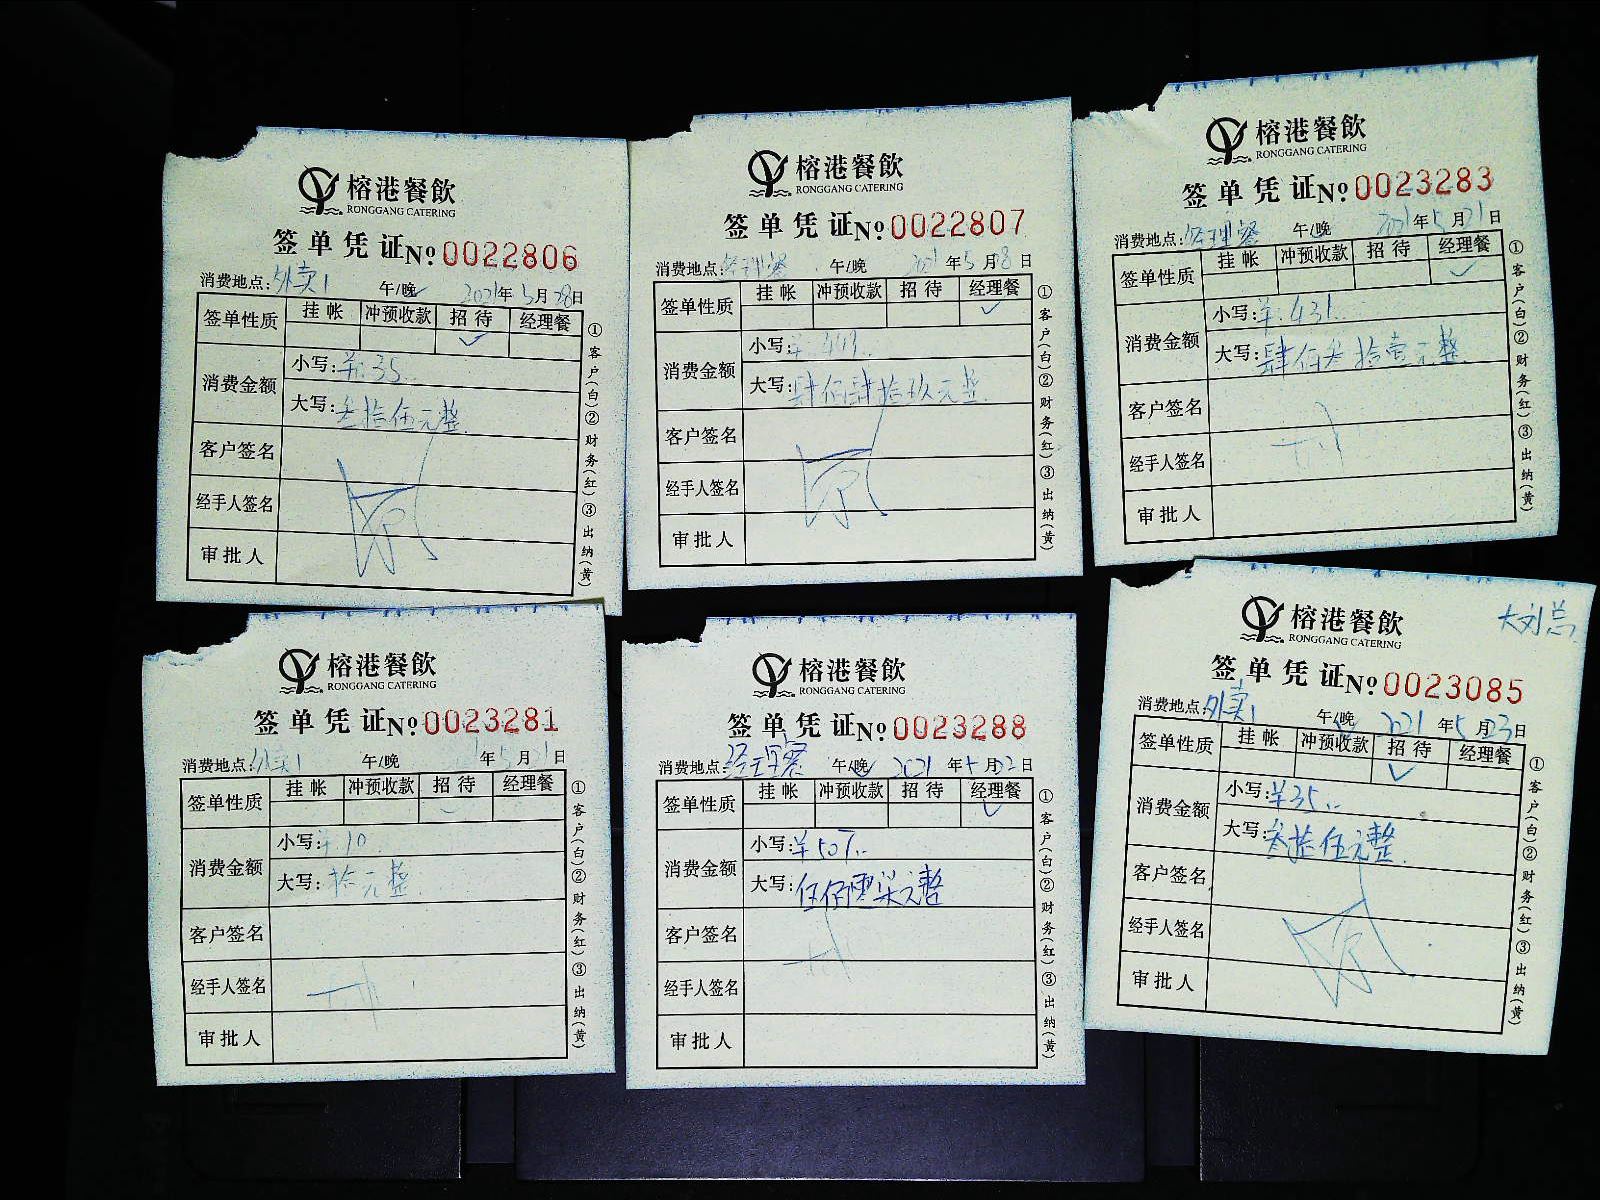 榕港餐飲
RONGGANG CATERING
签单凭证 No 0022806
消费地点:外卖1 午/晚 2021年5月28日
签单性质 挂帐 冲预收款 招待 经理餐
✓
消费金额 小写:¥:35..
大写:叁拾伍元整.
客户签名
经手人签名
审批人
①客户(白)②财务(红)③出纳(黄)
榕港餐飲
RONGGANG CATERING
签单凭证 No 0022807
消费地点:经理餐 午/晚 2021年5月28日
签单性质 挂帐 冲预收款 招待 经理餐
✓
消费金额 小写:¥:449..
大写:肆佰肆拾玖元整.
客户签名
经手人签名
审批人
①客户(白)②财务(红)③出纳(黄)
榕港餐飲
RONGGANG CATERING
签单凭证 No 0023283
消费地点:经理餐 午/晚 2021年5月21日
签单性质 挂帐 冲预收款 招待 经理餐
✓
消费金额 小写:¥:431..
大写:肆佰叁拾壹元整.
客户签名
经手人签名
审批人
①客户(白)②财务(红)③出纳(黄)
榕港餐飲
RONGGANG CATERING
签单凭证 No 0023281
消费地点:外卖1 午/晚 年5月21日
签单性质 挂帐 冲预收款 招待 经理餐
消费金额 小写:¥:10.
大写:拾元整.
客户签名
经手人签名
审批人
①客户(白)②财务(红)③出纳(黄)
榕港餐飲
RONGGANG CATERING
签单凭证 No 0023288
消费地点:经理餐 午/晚 2021年5月22日
签单性质 挂帐 冲预收款 招待 经理餐
✓
消费金额 小写:¥507..
大写:伍佰零柒元整
客户签名
经手人签名
审批人
①客户(白)②财务(红)③出纳(黄)
榕港餐飲
RONGGANG CATERING
大刘总
签单凭证 No 0023085
消费地点:外卖1 午/晚 2021年5月23日
签单性质 挂帐 冲预收款 招待 经理餐
✓
消费金额 小写:¥35..
大写:叁拾伍元整.
客户签名
经手人签名
审批人
①客户(白)②财务(红)③出纳(黄)